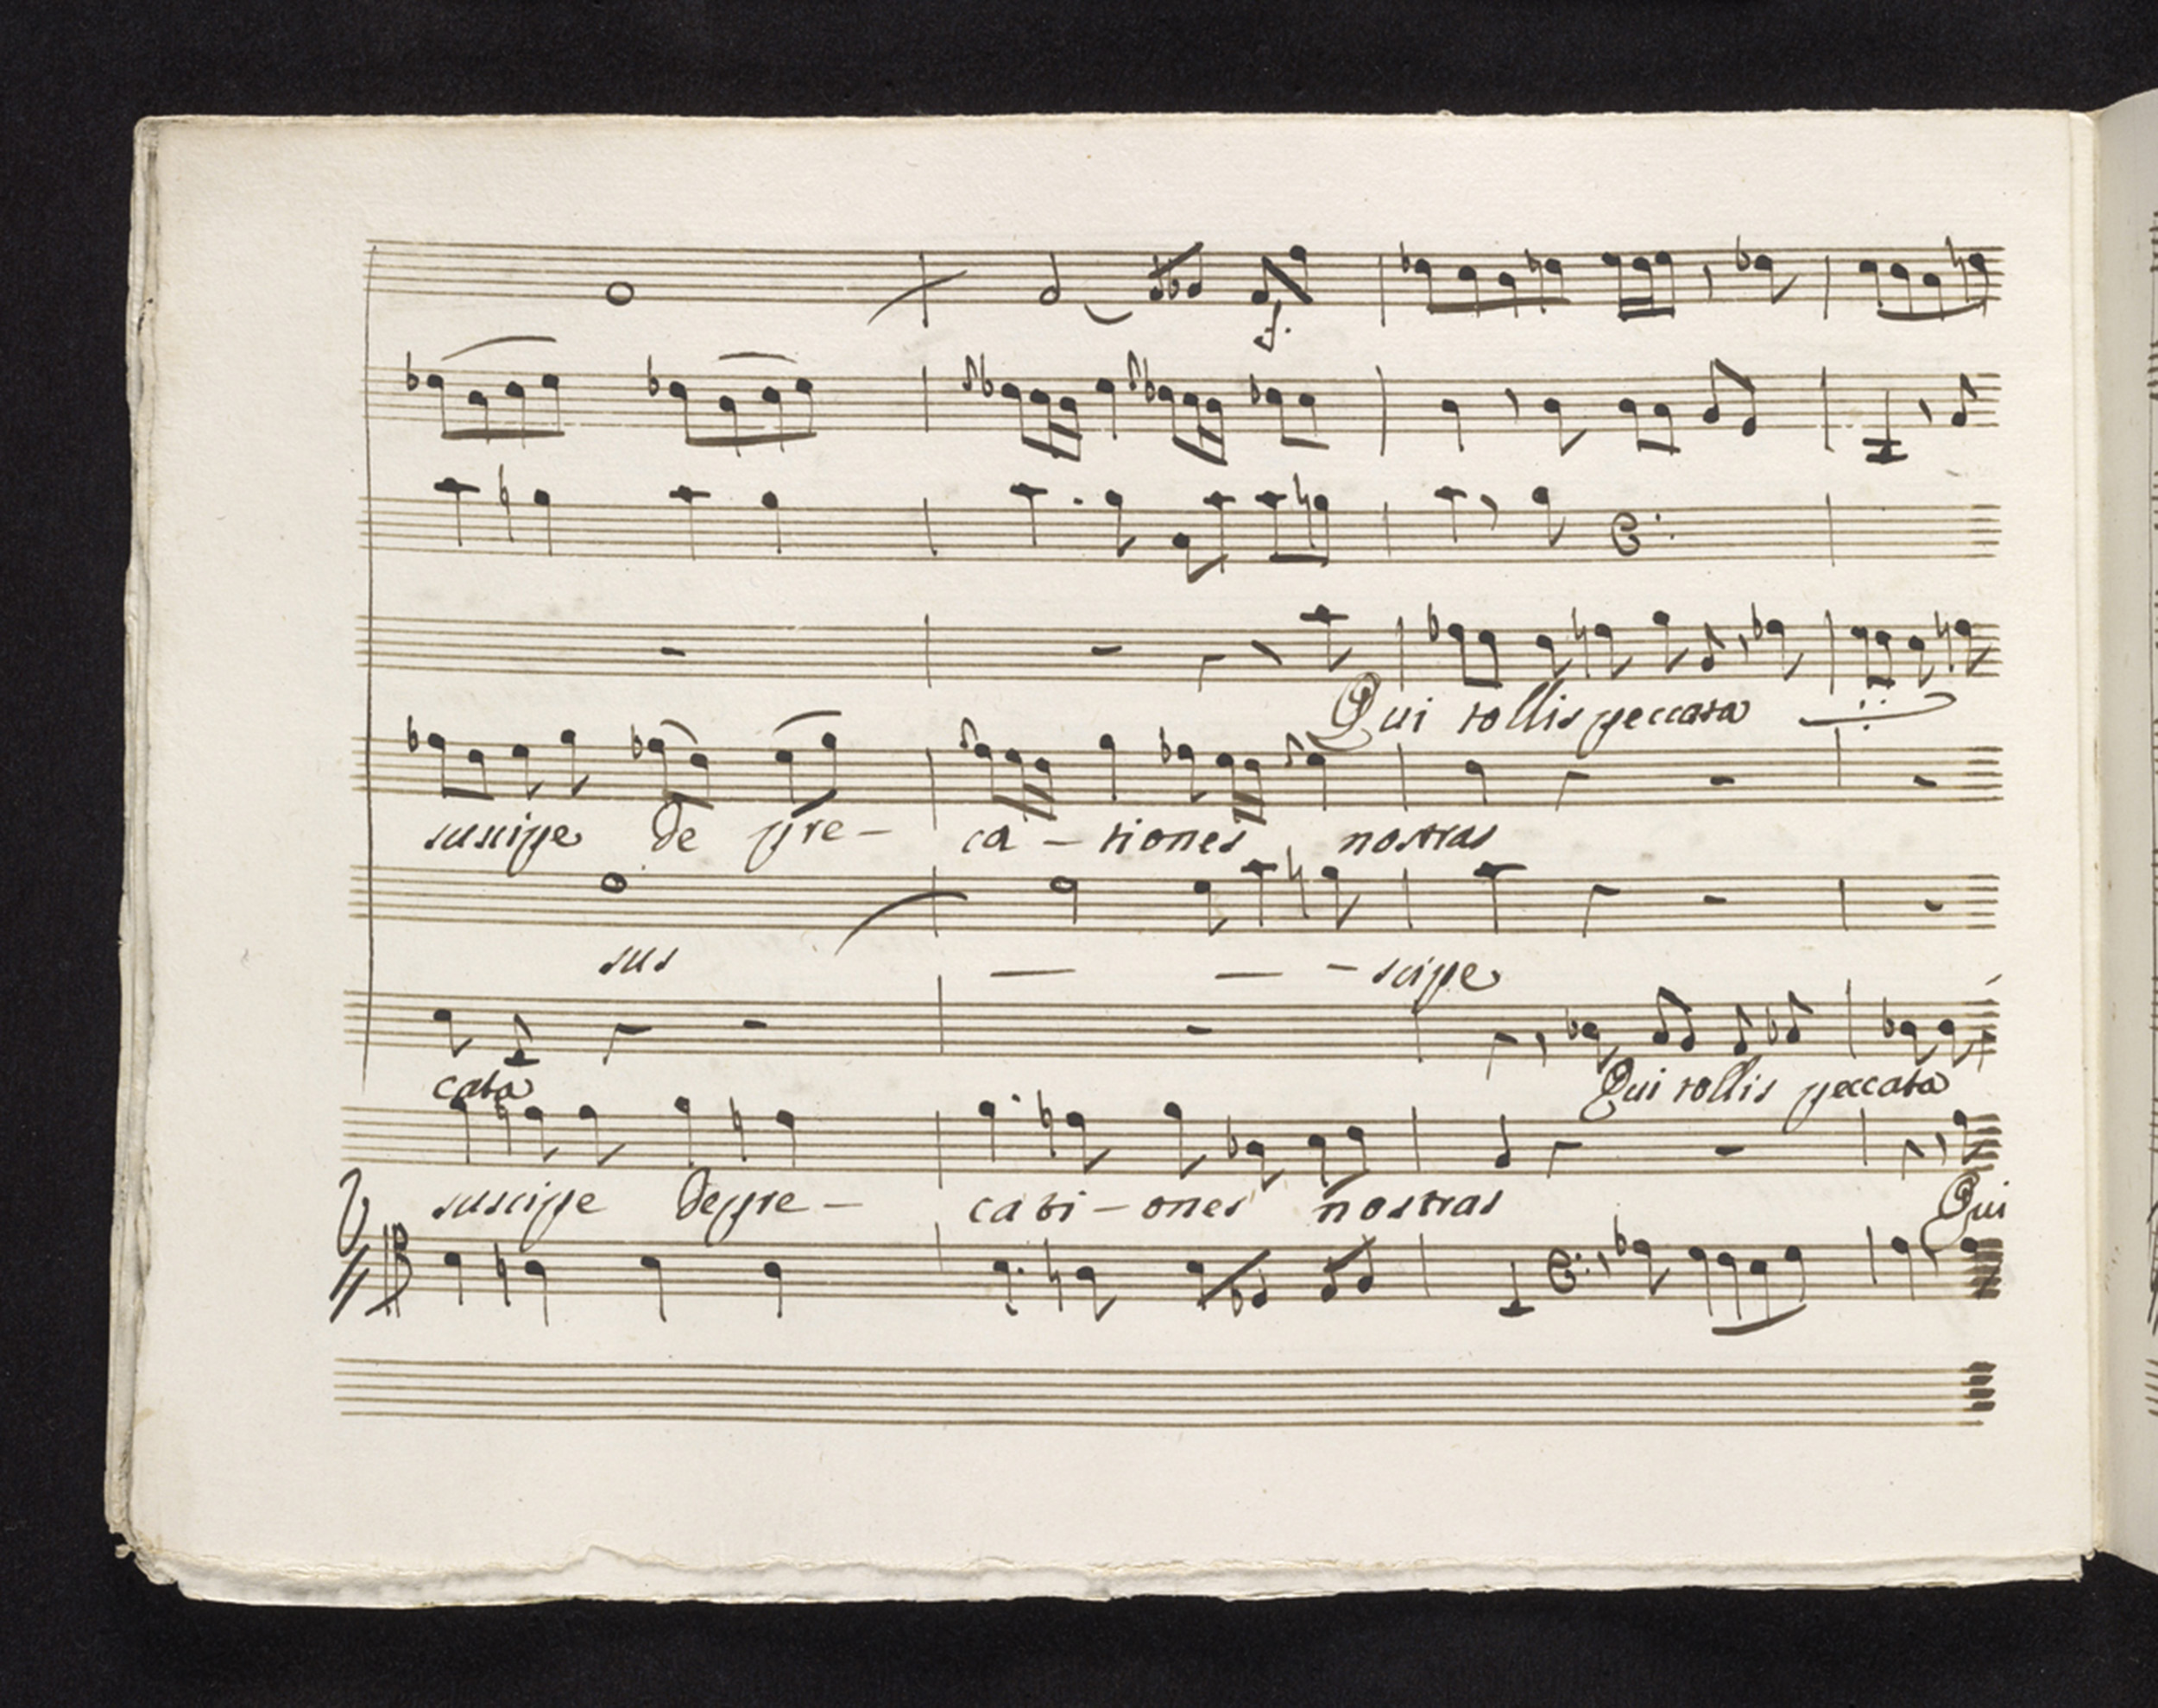 f.
Qui tollis peccata
suscipe de pre- ca - tiones nostras
sus - - - scipe
cata Qui tollis peccata
suscipe depre- cati - ones nostras Qui